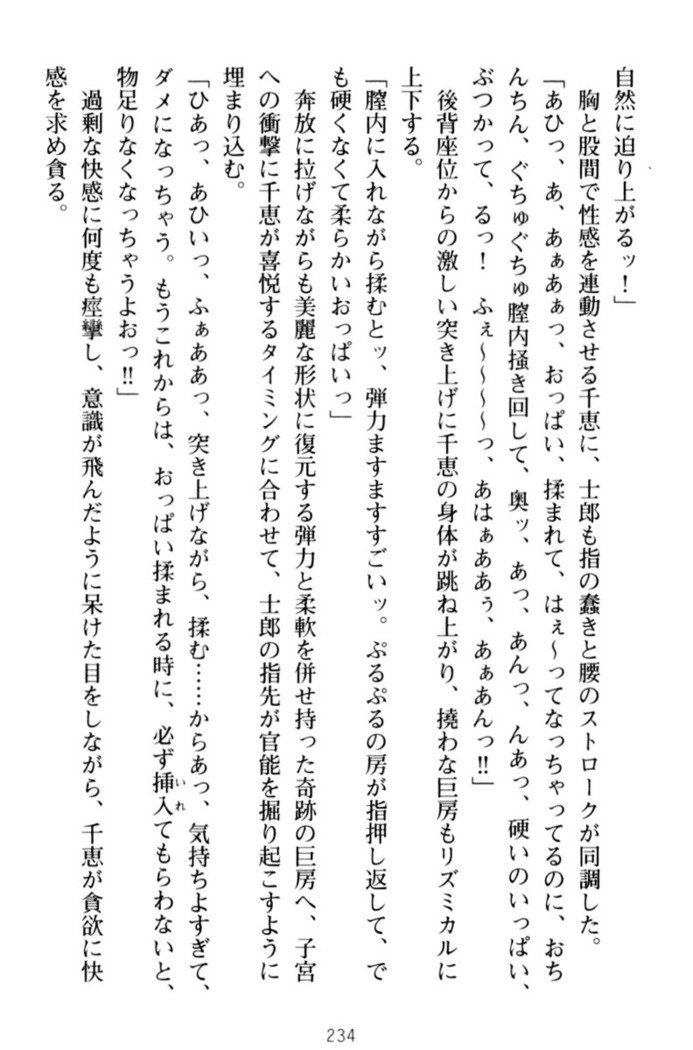 自然に迫り上がるッ！」
　胸と股間で性感を連動させる千恵に、士郎も指の蠢きと腰のストロークが同調した。
「あひっ、あ、あぁあぁっ、おっぱい、揉まれて、はぇ～ってなっちゃってるのに、おち
んちん、ぐちゅぐちゅ膣内掻き回して、奥ッ、あっ、あんっ、んあっ、硬いのいっぱい、
ぶつかって、るっ！　ふぇ～～～～っ、あはぁああぅ、あぁあんっ!!」
　後背座位からの激しい突き上げに千恵の身体が跳ね上がり、撓わな巨房もリズミカルに
上下する。
「膣内に入れながら揉むとッ、弾力ますますすごいッ。ぷるぷるの房が指押し返して、で
も硬くなくて柔らかいおっぱいっ」
　奔放に拉げながらも美麗な形状に復元する弾力と柔軟を併せ持った奇跡の巨房へ、子宮
への衝撃に千恵が喜悦するタイミングに合わせて、士郎の指先が官能を掘り起こすように
埋まり込む。
「ひあっ、あひいっ、ふぁああっ、突き上げながら、揉む……からあっ、気持ちよすぎて、
ダメになっちゃう。もうこれからは、おっぱい揉まれる時に、必ず挿入いれてもらわないと、
物足りなくなっちゃうよおっ!!」
　過剰な快感に何度も痙攣し、意識が飛んだように呆けた目をしながら、千恵が貪欲に快
感を求め貪る。
234